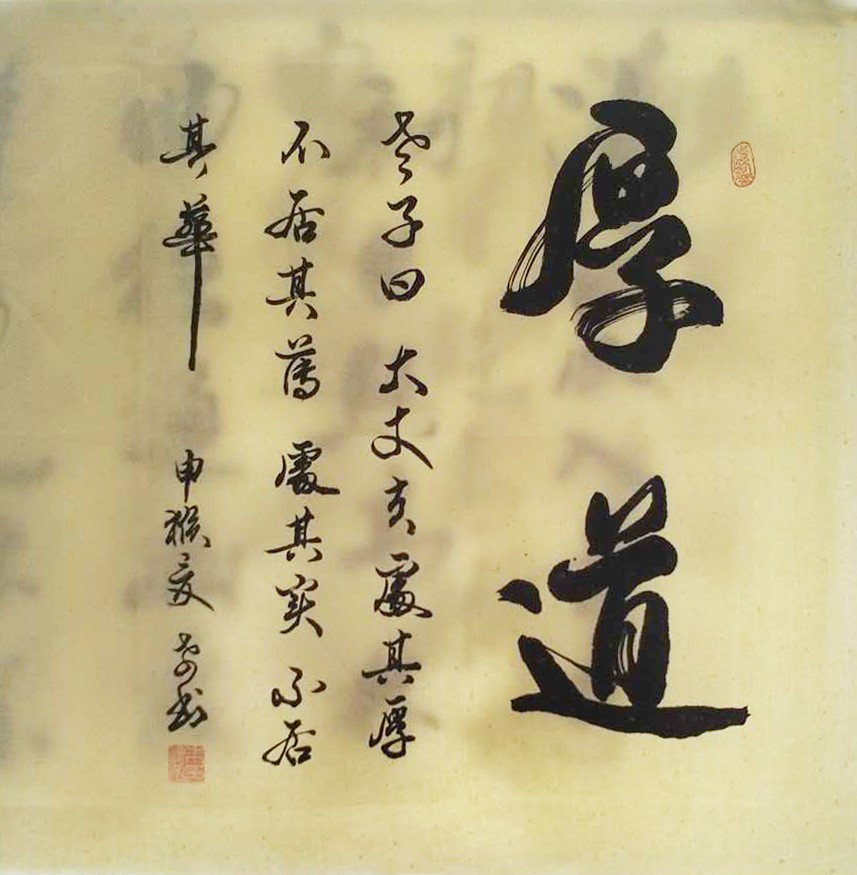 厚道
老子曰 大丈夫處其厚
不居其薄 處其实 不居
其華 申猴夏 书